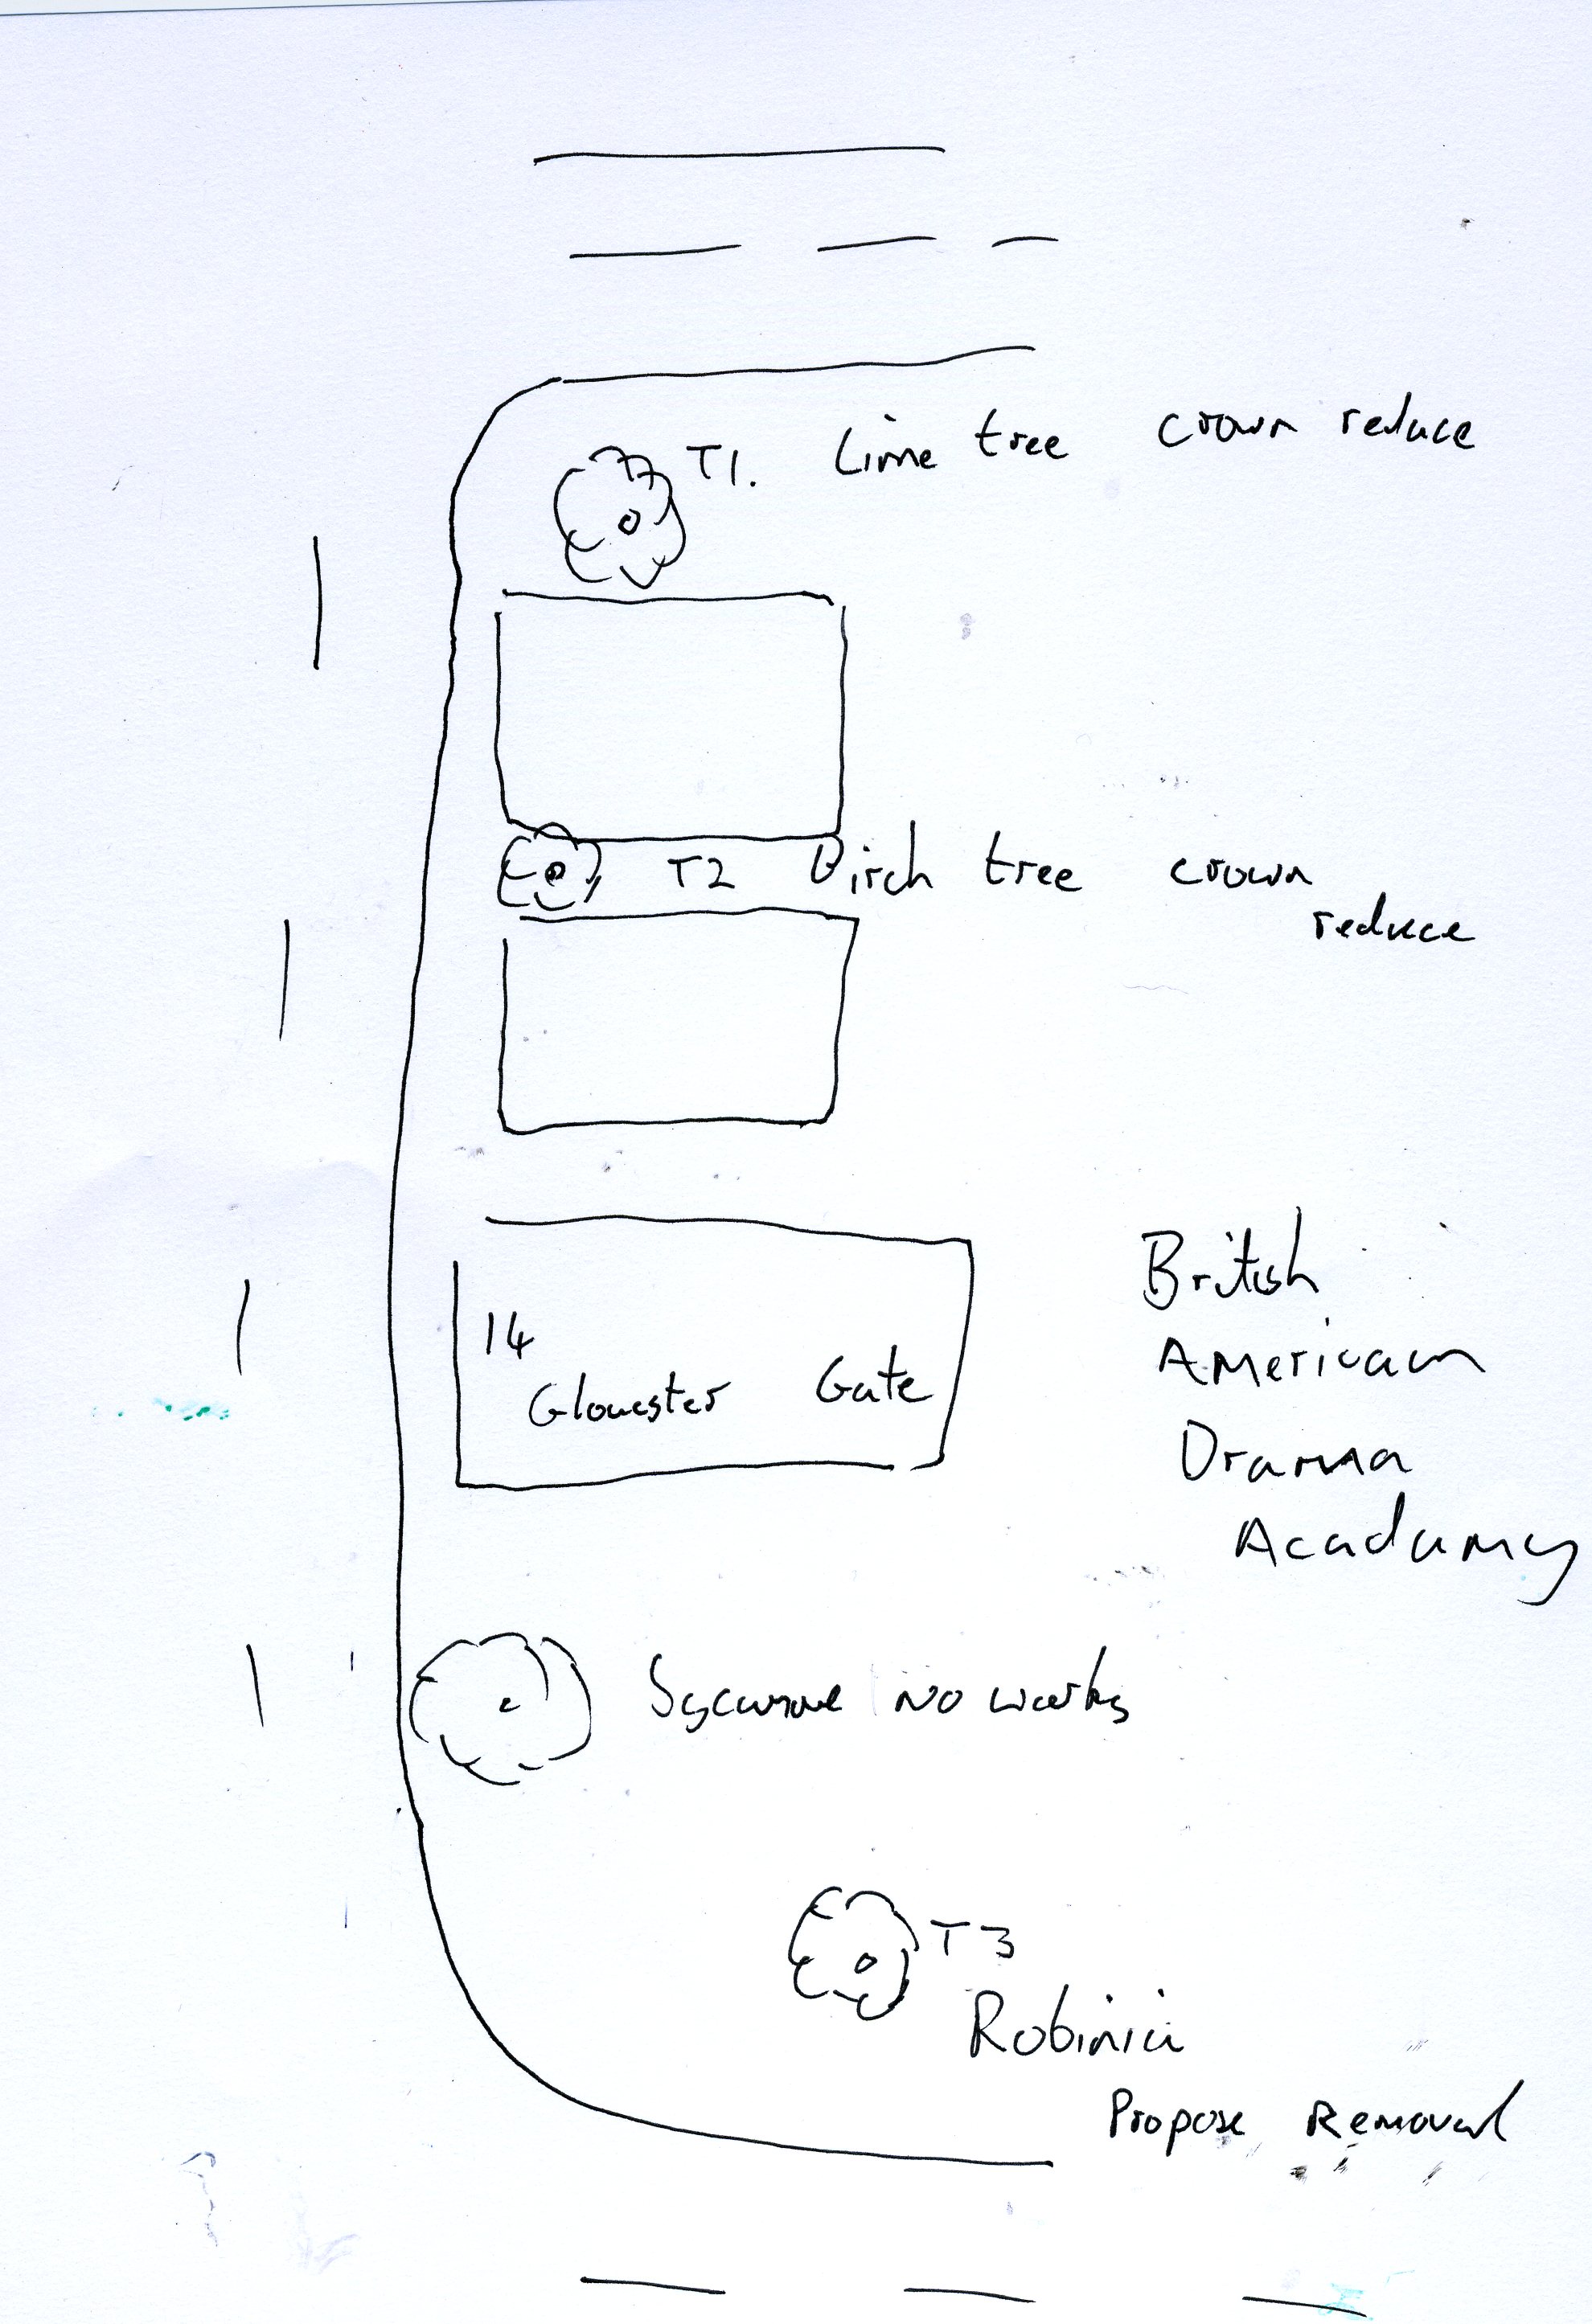 T1. Lime tree crown reduce
T2 Birch tree crown
reduce
14
Gloucester Gate
British
American
Drama
Acadamy
Sycamore No works
T3
Robinia
Propose Removal